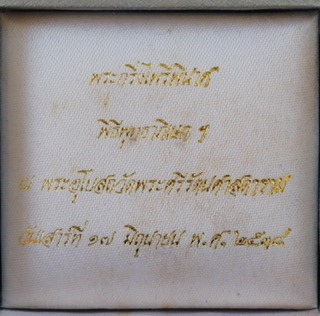 พระกริ่งไพรีพินาศ
พิธีพุทธาภิเษก
ณ พระอุโบสถวัดพระศรีรัตนศาสดาราม
วันเสาร์ที่ ๑๗ มิถุนายน พ.ศ. ๒๕๓๘